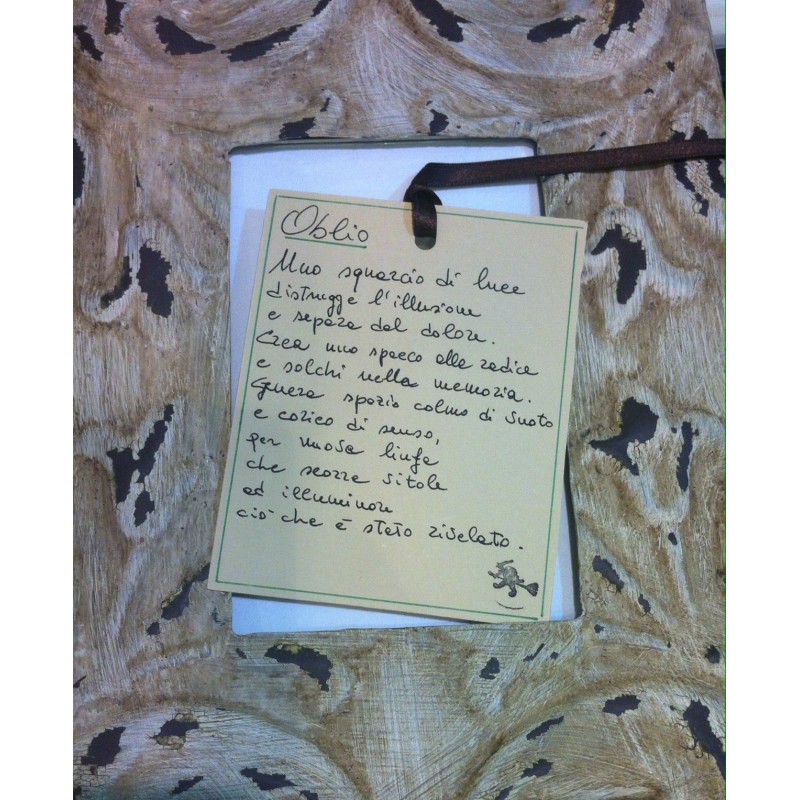 Oblio
Uno squarcio di luce
distrugge l'illusione
e separa dal dolore.
Crea uno specco alle radice
e solchi nella memoria.
Genera spazio colmo di vuoto
e carico di senso,
per nuova linfa
che scorre vitale
ad illuminare
ciò che è stato rivelato.